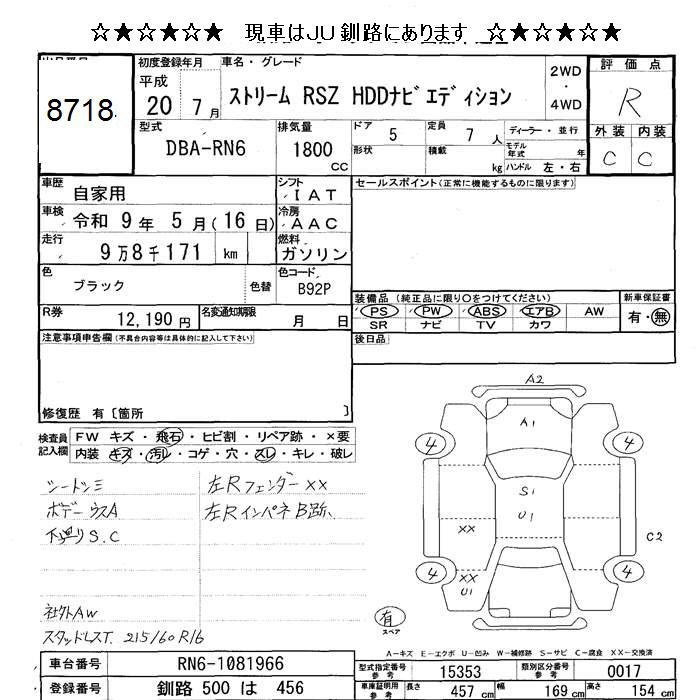 ☆★☆★☆★ 現車はJU釧路にあります ☆★☆★☆★
8718
初度登録年月
平成
20 7月
車名・グレード
ストリーム RSZ HDDナビエディション
2WD
・
4WD
評価点
R
外装 内装
C C
型式
DBA-RN6
排気量
1800
CC
ドア 5
形状
定員 7人
積載 kg
ディーラー・並行
モデル年式 年
ハンドル 左・右
車歴 自家用
シフト IAT
車検 令和 9年 5月(16日)
冷房 AAC
走行 9万8千171 km
燃料 ガソリン
色 ブラック
色替
色コード B92P
R券 12,190円
名変通知期限 月 日
セールスポイント(正常に機能するものに限ります)
装備品(純正品に限り○をつけてください)
PS PW ABS エアB AW
SR ナビ TV カワ
新車保証書
有・無
後日品
注意事項申告欄(不具合内容等は具体的に記入して下さい)
修復歴 有〔箇所 〕
検査員記入欄
FW キズ・飛石・ヒビ割・リペア跡・×要
内装 キズ・汚レ・コゲ・穴・スレ・キレ・破レ
シートシミ
ボデーウスA
下廻りS.C
社外AW
スタッドレスT. 215/60R16
左Rフェンダー××
左Rインパネ B跡、
A2
A1
4 4
S1
U1
××
C2
4 4
××
U1
有
スペア
A-キズ E-エクボ U-凹み W-補修跡 S-サビ C-腐食 XX-交換済
車台番号 RN6-1081966
登録番号 釧路 500 は 456
型式指定番号 参考 15353
類別区分番号 参考 0017
車庫証明用 参考 長さ 457 cm 幅 169 cm 高さ 154 cm